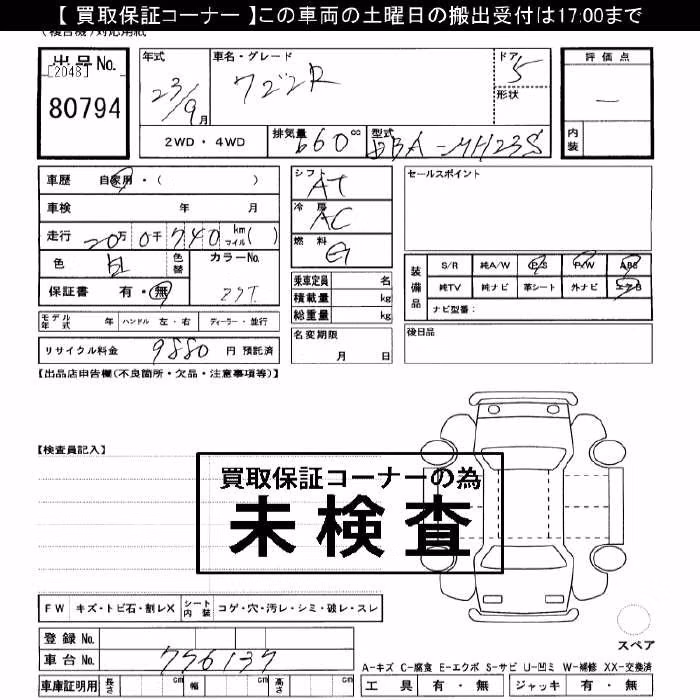 【 買取保証コーナー 】この車両の土曜日の搬出受付は17:00まで
(複合機)対応用紙
出品No.
[2048]
80794
年式
23/9月
車名・グレード
ワゴンR
ドア
5
形状
評価点
―
内装
2WD・4WD
排気量
660cc
型式
DBA-MH23S
車歴 自家用・( )
車検 年 月
走行 20万 0千 740 km マイル( )
色 白 色替 カラーNo.
保証書 有・無 Z7T
シフト
AT
冷房
AC
燃料
G
乗車定員 名
積載量 kg
総重量 kg
セールスポイント
装備品
S/R 純A/W P/S P/W ABS
純TV 純ナビ 革シート 外ナビ エアB
ナビ型番:
モデル年式 年 ハンドル 左・右 ディーラー・並行
リサイクル料金 9880 円 預託済
名変期限
月 日
後日品
【出品店申告欄(不良箇所・欠品・注意事項等)】
【検査員記入】
買取保証コーナーの為
未検査
FW キズ・トビ石・割レX シート内装 コゲ・穴・汚レ・シミ・破レ・スレ
登録No.
車台No. 756137
車庫証明用 長さ cm 幅 cm 高さ cm
スペア
A-キズ C-腐食 E-エクボ S-サビ U-凹ミ W-補修 XX-交換済
工具 有・無 ジャッキ 有・無